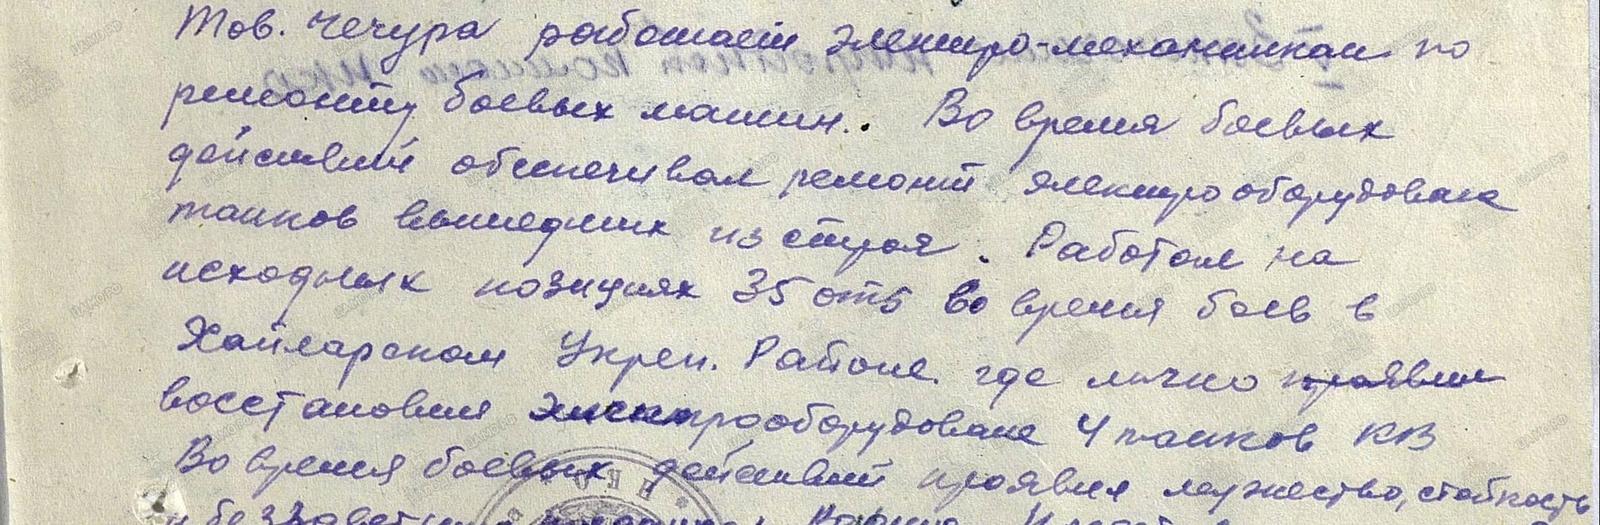 Тов. Чечура работает электро-механиком по
ремонту боевых машин. Во время боевых
действий обеспечивал ремонт электрооборудован
танков вышедших из строя. Работал на
исходных позициях 35 отб во время боев в
Хайларском Укреп. Районе где лично проявил
восстановил электрооборудован 4 танков КВ
Во время боевых действий проявил мужество, стойкость
и беззаветную